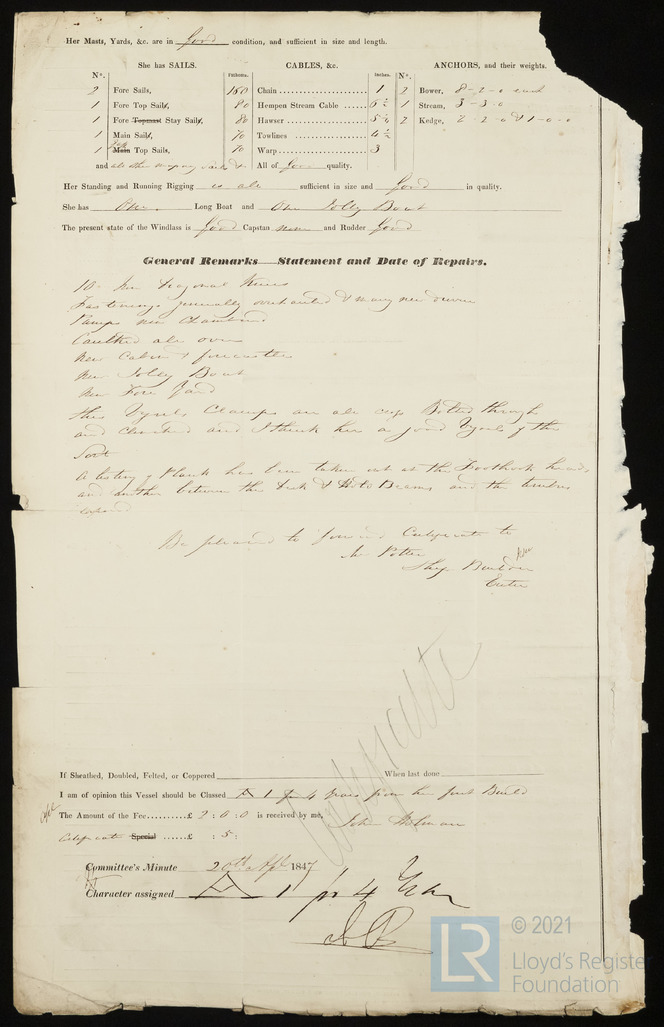 Her Masts, Yards, &c. are in good condition, and sufficient in size and length.
She has SAILS. CABLES, &c. ANCHORS, and their weights.
N°. Fathoms. Inches. N°.
2 Fore Sails, 160 Chain 1 2 Bower, 8-2-0 each
1 Fore Top Sails, 80 Hempen Stream Cable 6½ 1 Stream, 3-3-0
1 Fore Topmast Stay Sails, 80 Hawser 5½ 2 Kedge, 2-2-0 & 1-0-0
1 Main Sails, 70 Towlines 4½
1 Main Top Sails, 70 Warp 3
and all other All of Good quality.
Her Standing and Running Rigging is all sufficient in size and good in quality.
She has One Long Boat and One Jolly Boat
The present state of the Windlass is good Capstan none and Rudder good
General Remarks—Statement and Date of Repairs.
10 new Diagonal Knees
Fastenings generally overhauled & many new driven
Pumps new Chambered
Caulked all over
new Cabin & forecastle
new Jolly Boat
new Fore Yard
this Vessels Clamps are all Bolted through
and clenched and I think her a good Vessel of the
Sort
A listing of Plank has been taken out at the Foothook heads
and another between the Deck & Hold Beams and the timbers
exposed
Be pleased to forward Certificate to
Mr Potter
Ship Builder
Exeter
Certificate
If Sheathed, Doubled, Felted, or Coppered When last done
I am of opinion this Vessel should be Classed A 1 for 4 Years from her first Build
The Amount of the Fee £ 2 : 0 : 0 is received by me, John
Certificate Special £ : 5 :
Committee's Minute 20th Apl 1847
Character assigned A 1 for 4 Years
LR © 2021
Lloyd's Register
Foundation